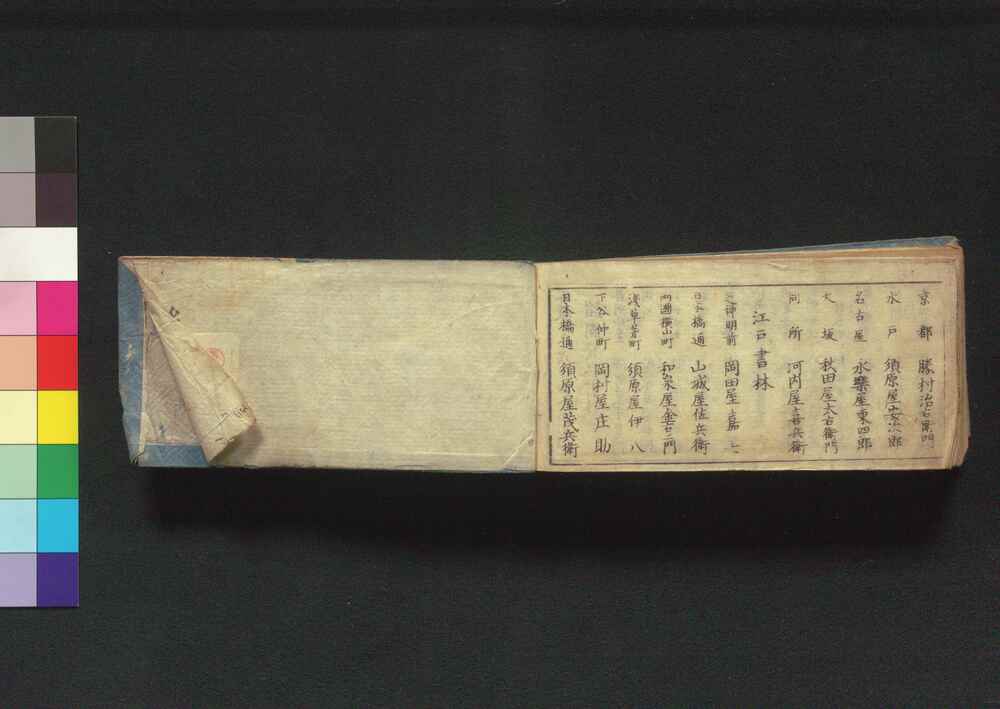 京都 勝村治右衛門
水戸 須原屋安次郎
名古屋 永樂屋東四郎
大坂 秋田屋太右衛門
同所 河内屋喜兵衛
江戸書林
芝神明前 岡田屋嘉七
日本橋通 山城屋佐兵衛
両國横山町 和泉屋金右衛門
浅草茅町 須原屋伊八
下谷仲町 岡村屋庄助
日本橋通 須原屋茂兵衛